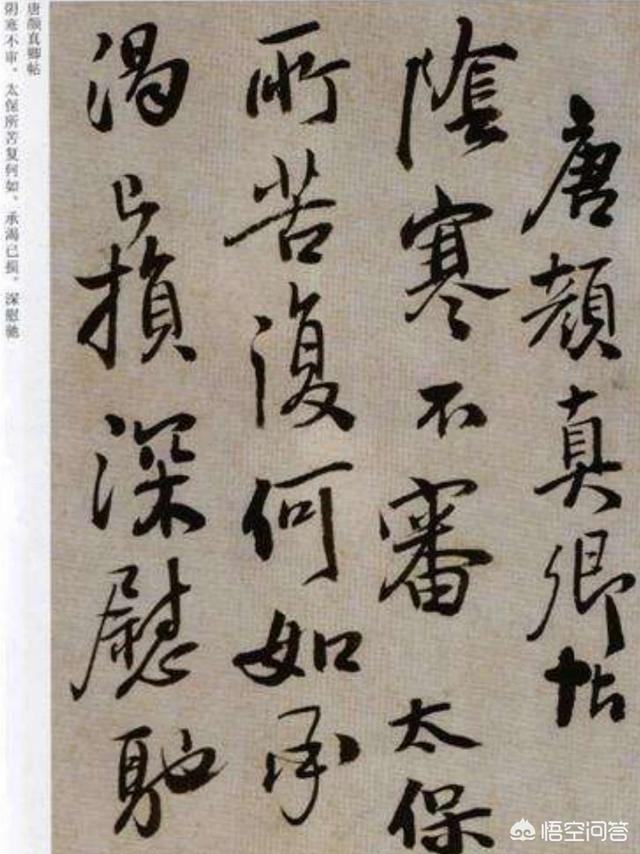 唐顔真卿帖
陰寒不審太保
所苦復何如承
渴已損深慰馳
唐颜真卿帖
阴寒不审，太保所苦复何如，承渴已损，深慰驰
悟空问答